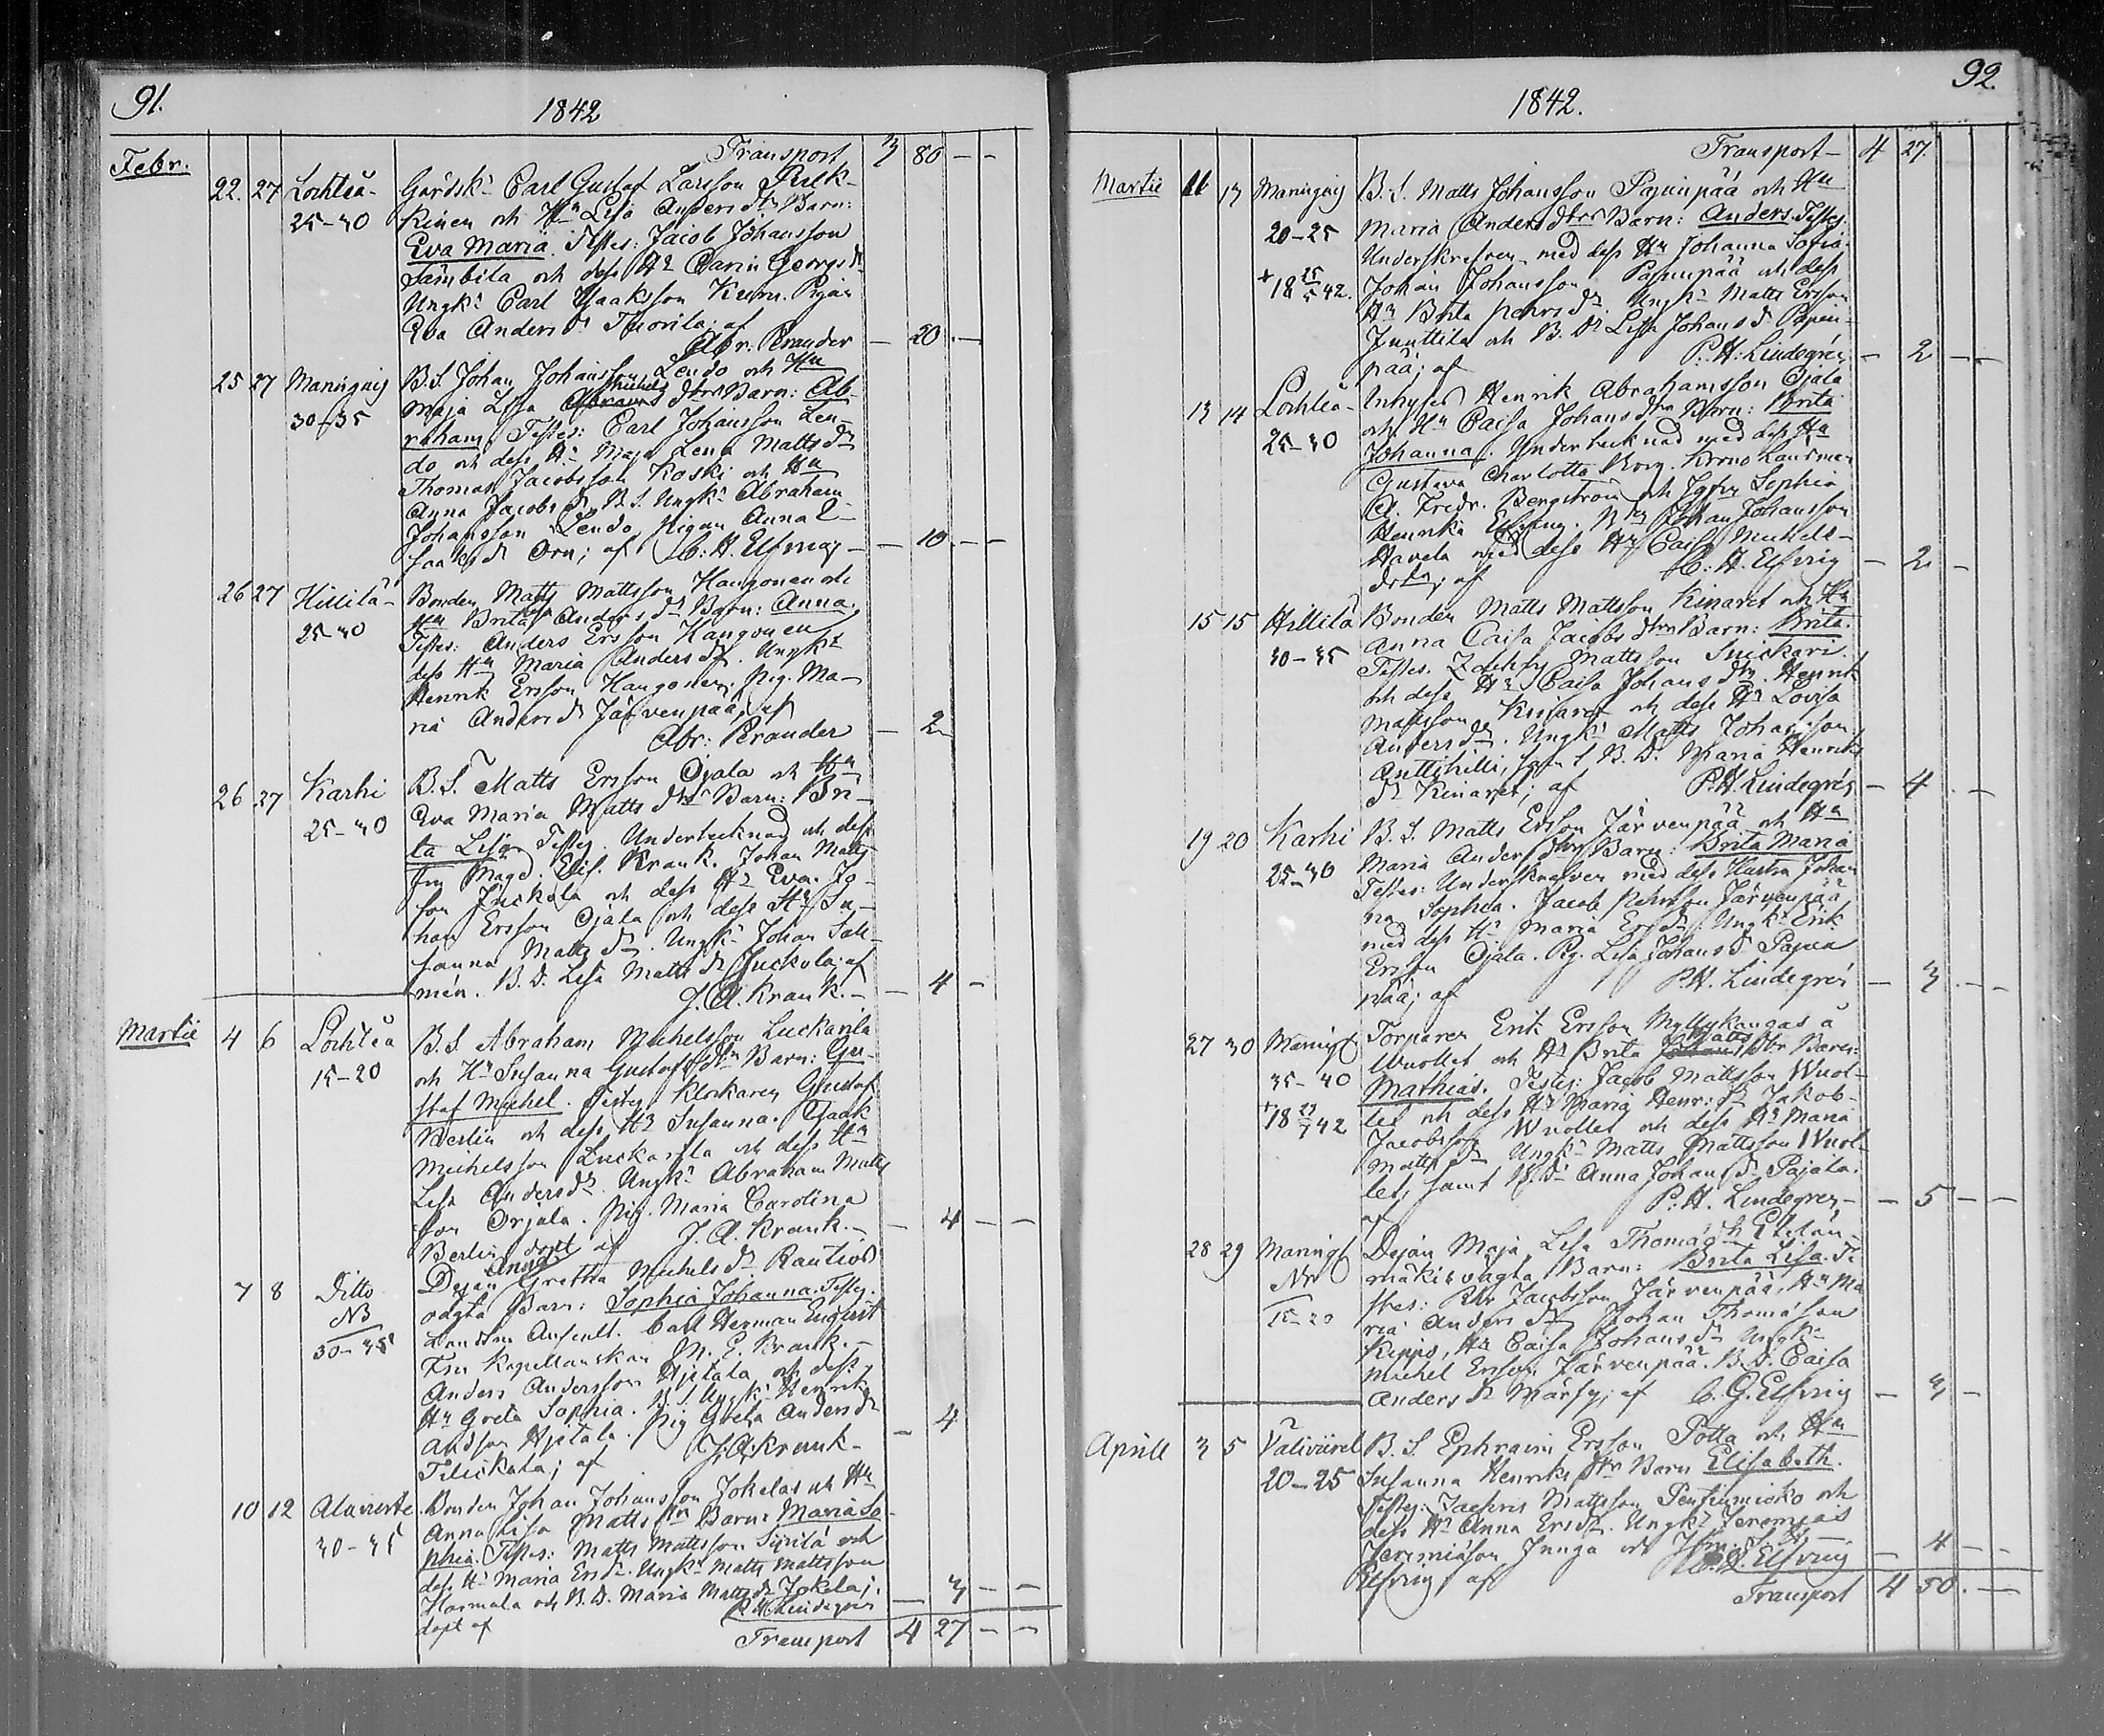 91.
1842
Transport 3 80 - -
Febr. 22. 27 Lochteå Gårdsk: Carl Gustaf Larsson Pulk-
25-30 kinen och Hu Lisa Andersdr Barn:
Eva Maria. Testes: Jacob Johansson
och dess Hu Carin Georgsdr
Ungk: Carl Isaaksson Pigan
Eva Andersdr Tuorila; af
Abr. Perander - 20 -
25 27 Maningaig B.S. Johan Johansson Lendo och Hu
30-35 Maja Lisa Michels dtrs Barn: Ab-
raham. Testes: Carl Johansson Len-
do och dess Hu Maja Lena Mattsdr
Thomas Jacobsson Koski och Hu
Anna Jacobsdr B.S. Ungk: Abraham
Johansson Lendo, Pigan Anna I-
saaksdr Orn; af C: H. Elfving - 10 - -
26 27 Hillilä Bonden Matts Mattsson Kangonen och
25-30 Hu Brita Andersdr Barn: Anna.
Testes: Anders Ersson Kangonen
dess Hu Maria Andersdr. Ungk:
Henrik Ersson Kangonen, Pig. Ma-
ria Andersdr Järvenpää, af
Abr: Perander - 2
26 27 Karhi B.S. Matts Ersson Ojala och Hu
25-30 Eva Maria Matts dtrs Barn: Bri-
ta Lisa. Testes. Undertecknad och dess
fru Magd. Elis. Krank. Johan Matts
son Juckola och dess Hu Eva. Jo-
han Ersson Ojala och dess Hu Su-
sanna Mattsdr. Ungk: Johan Sal-
mén. B.D. Lisa Mattsdr Juckola; af
J. A. Krank. - 4 -
Martii 4 6 Lochteå B.S. Abraham Michelsson Luckarila
15-20 och Hu Susanna Gustafsdtr Barn: Gu-
staf Michel. Testes Klockaren Gustaf
Berlin och dess Hu Susanna. Isaak
Michelsson Luckarila och dess Hu
Lisa Andersdr. Ungk: Abraham Matts
son Orjala. Pig. Maria Carolina
Berlin döpt af J. A. Krank. - 4 - -
7 8 Ditto Dejan Anna Gretha Michelsdr Rautios
NB oägta Barn: Sophia Johanna. Testes.
30-35 Landtm Auscult. Carl Herman Engqvist
Fru Kapellanskan M. E. Krank.
Anders Andersson Hjetala och dess
Hu Greta Sophia. B.S. Ungk: Henrik
Andson Hjetala. Pig Greta Andersdr
Tilickala; af J. A. Krank - 4
10 12 Alaviirte Bonden Johan Johansson Jokelas och Hu
30-35 Anna Lisa Matts dtrs Barn: Maria So-
phia. Testes: Matts Mattsson Siirilä och
dess Hu Maria Ersdr. Ungk: Matts Mattsson
Harmala och B.D. Maria Mattsdr Jokela;
döpt af P. H. Lindegrén - 3 - -
Transport 4 27 - -
92.
1842.
Transport 4 27.
Martii 11 13 Maningaig B.S. Matts Johansson Pajunpää och Hu
20-25 Maria Anders dtrs Barn: Anders. Testes.
Underskrefven med dess Hu Johanna Sofia.
+18 25/5 42. Johan Johansson Pajunpää och dess
Hu Brita Pehrsdr. Ungk: Matts Ersson
Junttila och B.Dr Lisa Johansdr Pajun-
pää; af P. H. Lindegrén - 2 - -
13 14 Lochteå Inhyses Henrik Abrahamsson Ojala
25-30 och Hu Caisa Johansdtr Barn: Brita
Johanna. Undertecknad med dess Hu
Gustava Charlotta Borg. Krono Länsman
A. Fredr. Bergström och Jgfru Sophia
Henrika Elfving. Johan Johansson
Havela med dess Hu Caisa Michels-
dotter; af C. H. Elfving - 2 -
15 15 Hillilä Bonden Matts Mattsson Kinaret och Hu
30-35 Anna Caisa Jacobs dtrs Barn: Brita.
Testes. Zachris Mattsson Snickari
och dess Hu Caisa Johansdtr. Henrik
Mattsson Kinaret och dess Hu Lovisa
Andersdr. Ungk: Matts Johansson
Anttihilli, samt B.D. Maria Henriks
dr Kinaret; af P. H. Lindegrén - 4 -
19 20 Karhi B.S. Matts Ersson Järvenpää och Hu
25-30 Maria Anders dtrs Barn: Brita Maria
Testes: Underskrefven med dess Hustru Johan
na Sophia. Jacob Pehrsson Järvenpää
med dess Hu Maria Ersdr. Ungk: Erik
Ersson Ojala. Pig. Lisa Johansdr Pajun
pää; af P. H. Lindegrén - 3 - -
27 30 Maningl Torparen Erik Ersson Myllykangas å
35-40 Wuollet och Hu Brita Matts dtr Barn:
Mathias. Testes: Jacob Mattsson Wuol-
+18 42 let och dess Hu Maria Henr:dr Jakob
Jacobsson Wuollet och dess Hu Maria
Mattsdr Ungk: Matts Mattsson Wuol-
let, samt B.Dr Anna Johansdr Pajala.
af P. H. Lindegren, - 5 - -
28 29 Maningl Dejan Maja Lisa Thomasdr
NB mäkis oägta Barn: Brita Lisa. Te
15-20 stes: Jacobsson Järvenpää, Hu Ma
ria Andersdr Johan Thomasson
Kippo, Hu Caisa Johansdr Ungk:
Michel Ersson Järvenpää. B.D. Caisa
Andersdr Märsy; af C. G. Elfving - 3 -
Aprill 3 5 Väliviirret B.S Ephraim Ersson Potta och Hu
20-25 Susanna Henriks dtrs Barn Elisabeth.
Testes: Zachris Mattsson Penttimicko och
dess Hu Anna Ersdr. Ungk: Jeremias
Jeremiasson Junga och Jfru S. H.
Elfving af C. H. Elfving - 4 - -
Transport 4 50. -